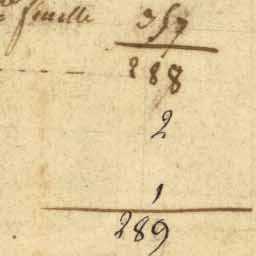 feuille 357
288
2
1
289